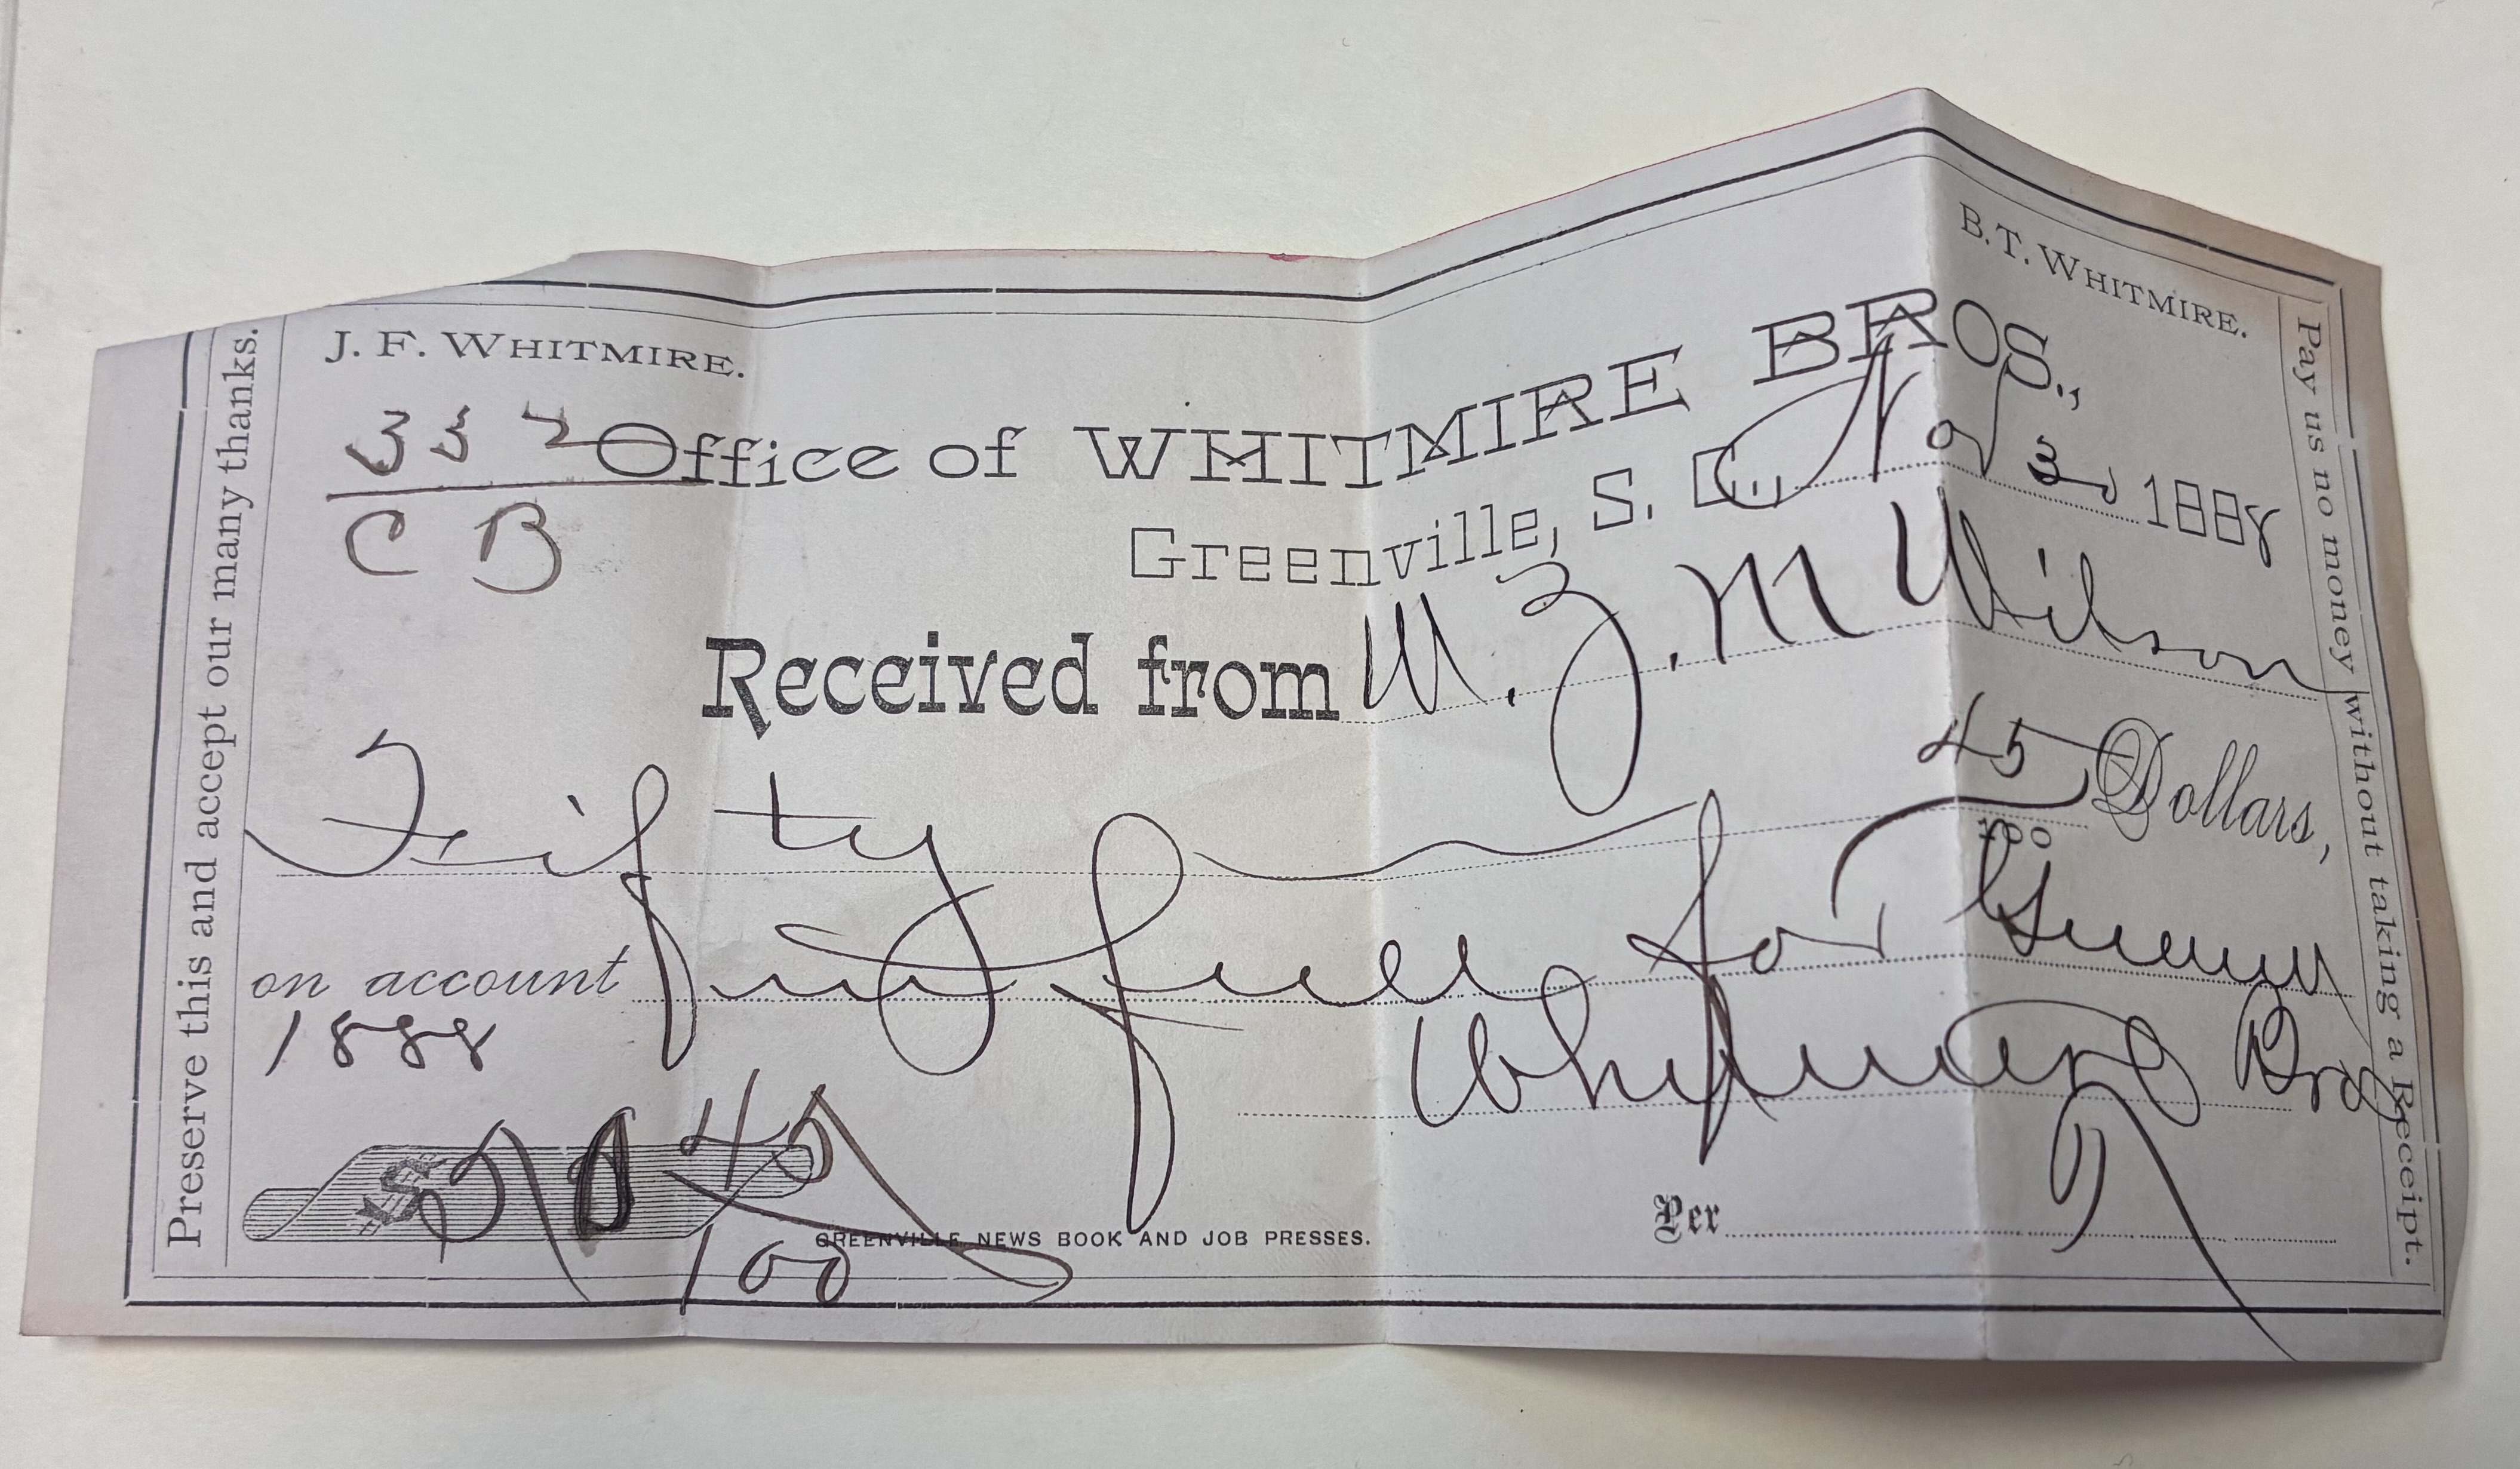 J. F. WHITMIRE.
B. T. WHITMIRE.
332
CB
Office of WHITMIRE BROS.,
Greenville, S. C., Nov 3 1888
Received from W. Z. M Wilson
Fifty 45/100 Dollars,
on account in full for
1888
Whitmire Bro
$50 45/100
Per
GREENVILLE NEWS BOOK AND JOB PRESSES.
Preserve this and accept our many thanks.
Pay us no money without taking a Receipt.